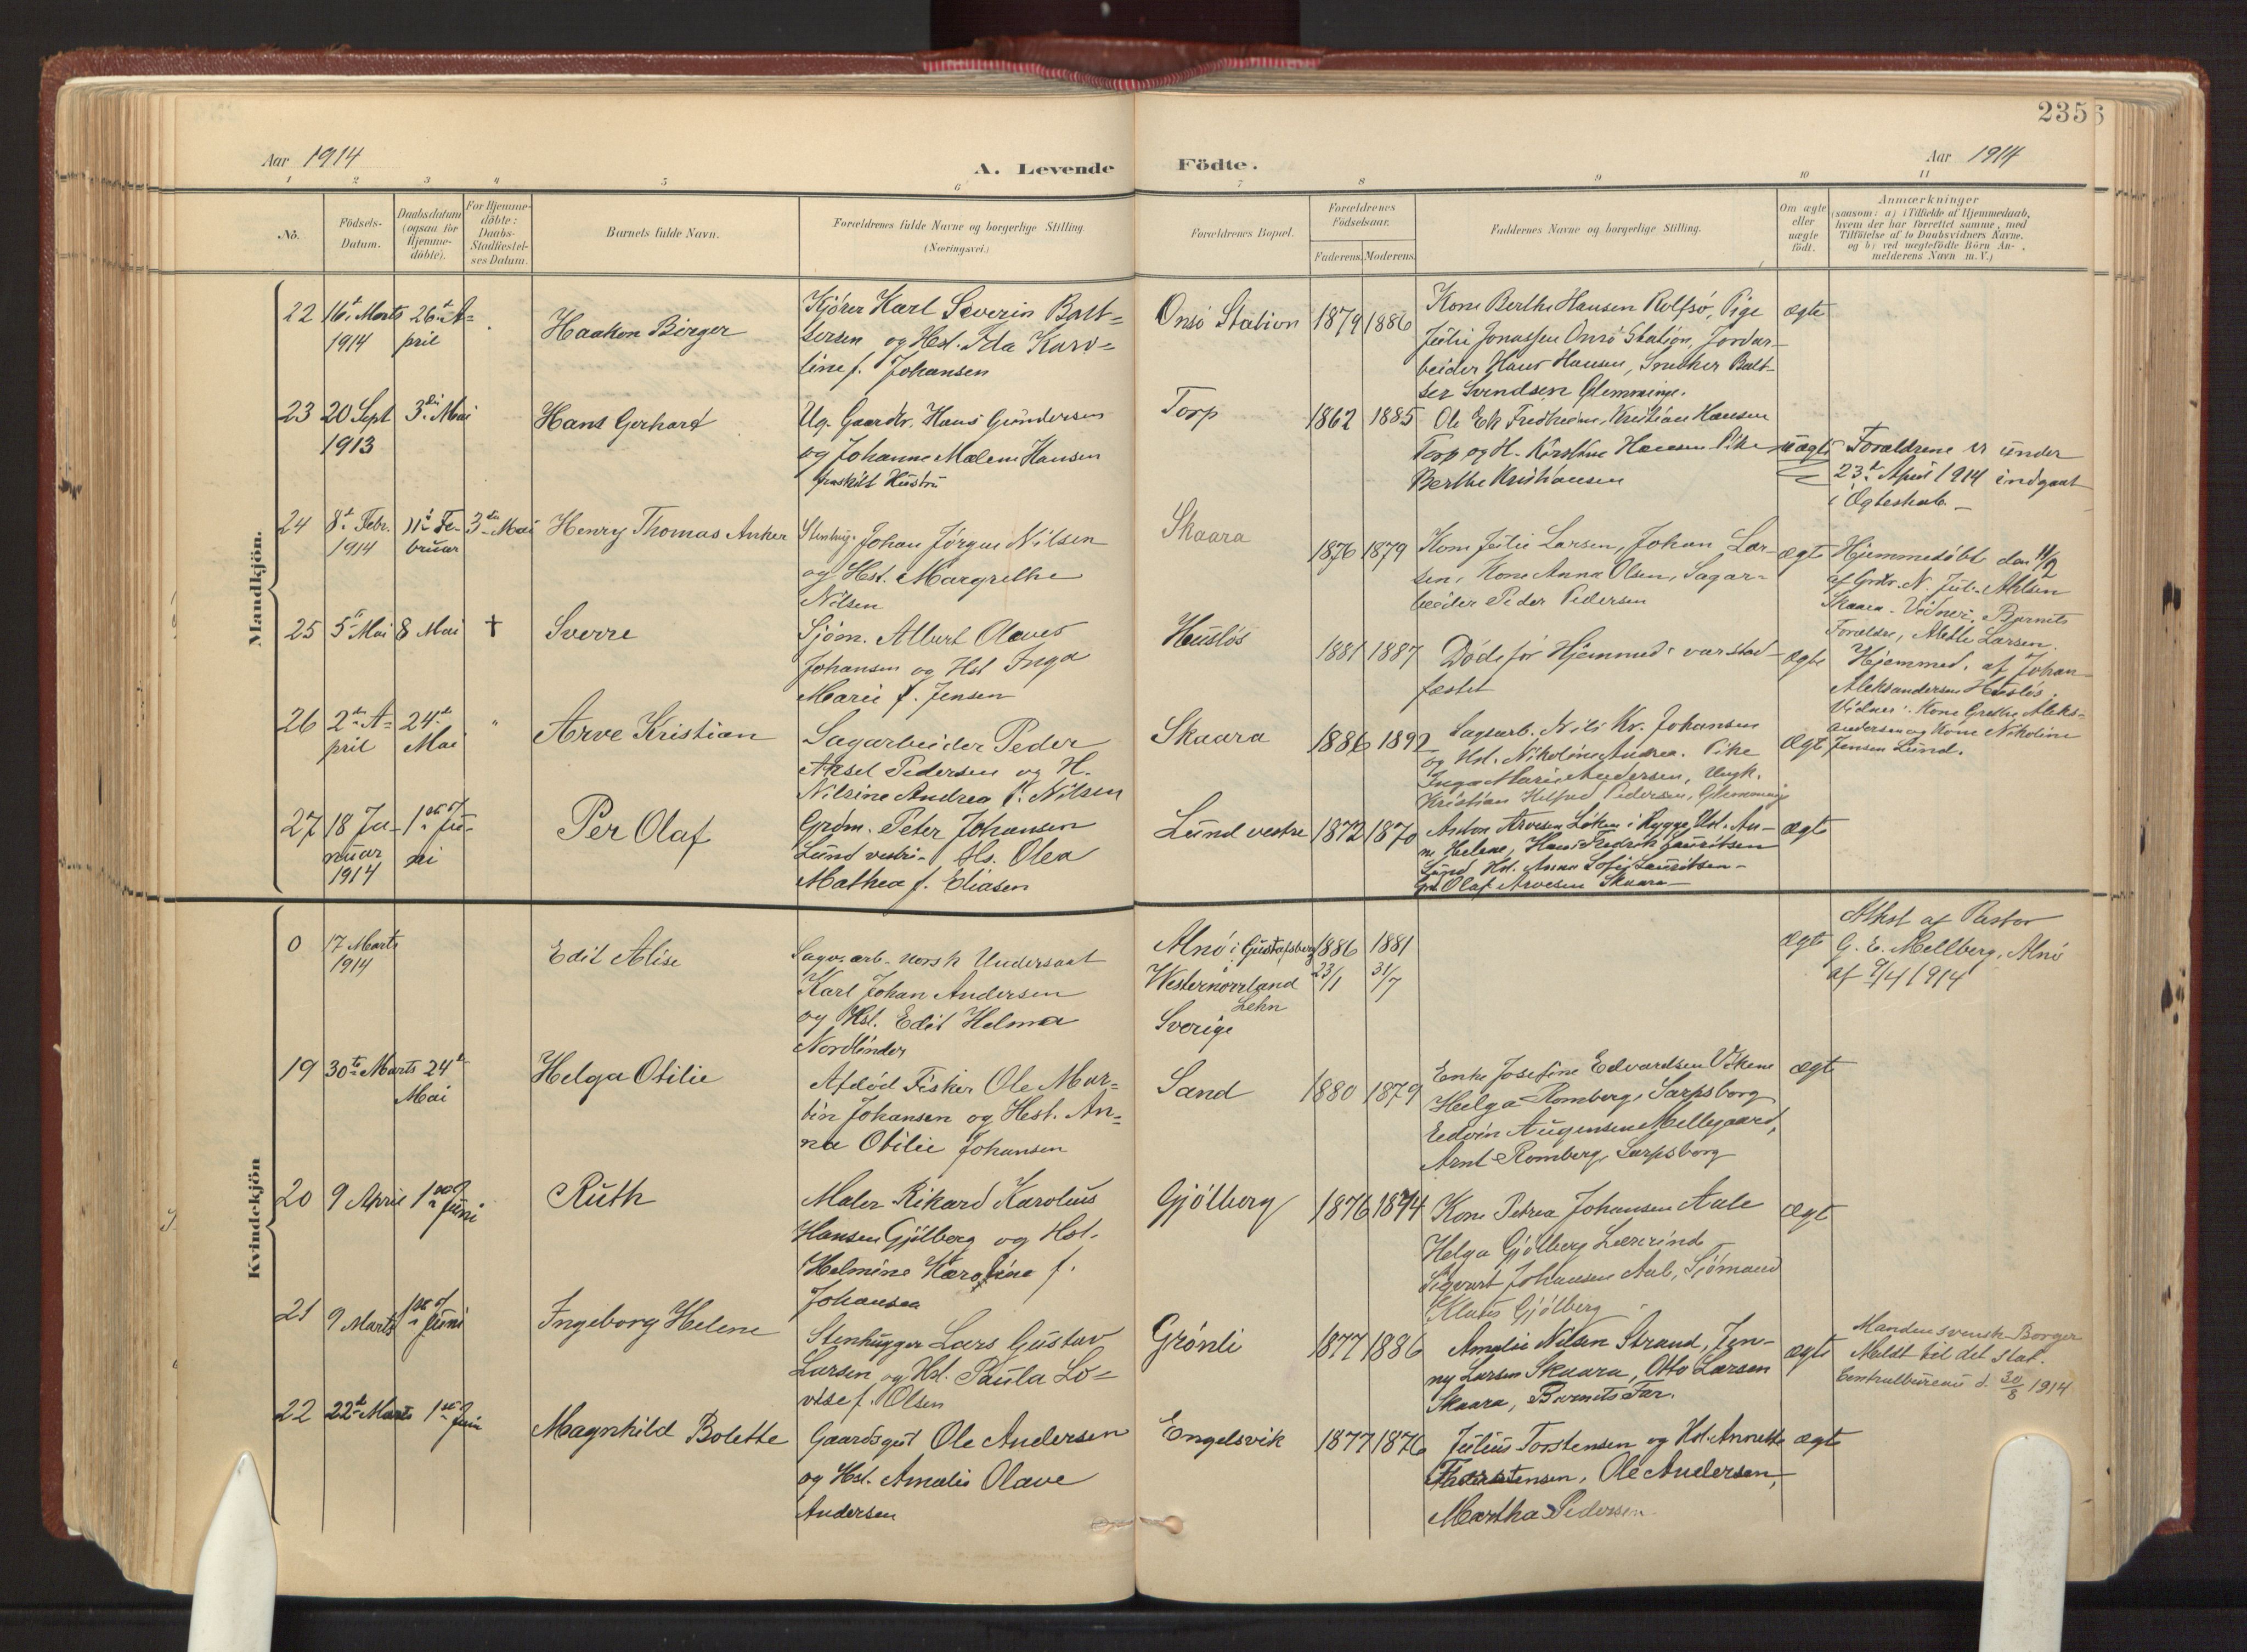 2356
Aar 1914
A. Levende Födte.
Aar 1914
1 2 3 4 5 6 7 8 9 10 11
No.
Födsels-
Datum.
Daabsdatum
(ogsaa for
Hjemme-
döbte).
For Hjemme-
döbte:
Daabs-
Stadfæstel-
ses Datum.
Barnets fulde Navn.
Forældrenes fulde Navne og borgerlige Stilling
(Næringsvei.)
Forældrenes Bopæl.
Forældrenes
Födselsaar.
Faderens. Moderens.
Faddernes Navne og borgerlige Stilling.
Om ægte
eller
uægte
födt.
Anmærkninger
(saasom: a) i Tilfælde af Hjemmedaab,
hvem der har forrettet samme, med
Tilföielse af to Daabsvidners Navne,
og b) ved uægtefödte Börn An-
melderens Navn m. V.)
Mandkjön.
22
16t Marts
1914
26t A=
pril
Haakon Birger
Kjörer Karl Severin Balt=
sersen og Hst. Ida Karo=
line f. Johansen
Onsö Station
1879 1886
Kone Berthe Hansen Rolfsö, Pige
Julie Jonassen Onsö Station, Jordar-
beider Hans Hansen, Snekker Balt-
ser Svendsen Glemminge.
ægte
23
20 Sept
1913
3die Mai
Hans Gerhard
Ug. Gaardbr. Hans Gundersen
og Johanne Malene Hansen
fraskilt Hustru
Torp
1862 1885
Ole Ek Fredheim, Kristian Hansen
Torp og H. Kirstine Hansen Pike
Berthe Kristiansen
uægte
Forældrene er under
23de April 1914 indgaat
i Ægteskab. —
24
8t Febr.
1914
11t Fe-
bruar
3die Mai
Henry Thomas Anker
Stenhug. Johan Jörgen Nilsen
og Hst. Margrethe
Nilsen
Skaara
1876 1879
Kone Julie Larsen, Johan Lar-
sen, Kone Anna Olsen, Sagar-
beider Peder Pedersen
ægte
Hjemmedöbt den 11/2
af Grdbr. N. Jul. Ahlsen
Skaara. Vidner: Barnets
Forældre, Alette Larsen.
25
5te Mai
8 Mai
†
Sverre
Sjöm. Albert Olaves
Johansen og Hst Inga
Marie f. Jensen
Huslös
1881 1887
Döde för Hjemmed. var stad-
fæstet
ægte
Hjemmed. af Johan
Aleksandersen Huslös.
Vidner: Kone Grethe Aleks=
andersen og Kone Nikoline
Jensen Lund.
26
2den A=
pril
24de
Mai
"
Arve Kristian
Sagarbeider Peder
Aksel Pedersen og H.
Nilsine Andrea f. Nilsen
Skaara
1886 1892
Sagarb. Nils Kr. Johansen
og Hst. Nikoline Andrea. Pike
Inga Marie Andersen, Ungk.
Kristian Hilfred Pedersen, Glemminge
Ægte
27
18 Ja-
nuar
1914
1ste Ju-
ni
Per Olaf
Grdm. Peter Johansen
Lund vestri - Hs. Olea
Mathea f. Eliasen
Lund vestre
1872 1870
Anton Arvesen Löken i Rygge Hst. An-
na Helene, Hans Fredrik Lauritsen
Lund Hst. Anna Sofie Lauritsen -
Grd. Olaf Arvesen Skaara -
ægte
Kvindekjön
0
17 Marts
1914
Edit Alise
Sagv. arb. norsk Undersaat
Karl Johan Andersen
og Hst. Edit Helma
Nordlinder
Alnö i Gustafsberg
Westernorrland
Lehn
Sverige
1886 1881
23/1 31/7
ægte
Athst af Pastor
G. E. Mellberg, Alnö
af 9/4 1914
19
30te Marts
24de
Mai
Helga Otilie
Afdöd Fisker Ole Mar=
tin Johansen og Hst. An=
na Otilie Johansen
Sand
1880 1879
Enke Josefine Edvardsen Vikene
Helga Romberg, Sarpsborg
Edvin Augensen Mellegaard,
Arnt Romberg, Sarpsborg
ægte
20
9 April
1ste Juni
Ruth
Maler Rikard Karolius
Hansen Gjölberg og Hst.
Helmine Karoline f.
Johansen
Gjölberg
1876 1874
Kone Petrea Johansen Aale
Helga Gjölberg Lærerinde
Sigvart Johansen Aale, Sjömand
Klaus Gjölberg
ægte
21
9 Marts
1ste Juni
Ingeborg Helene
Stenhugger Lars Gustav
Larsen og Hst. Paula Lo=
vise f. Olsen
Grönli
1877 1886
Amalie Nilsen Strand, Jen-
ny Larsen Skaara, Otto Larsen
Skaara, Barnets Far.
ægte
Manden svensk Borger
Meldt til det stat.
Centralbureau d. 30/8 1914
22
22de Marts
1ste Juni
Magnhild Bolette
Gaardsgut Ole Andersen
og Hst. Amalie Olave
Andersen
Engelsvik
1877 1876
Julius Torstensen og Hst. Annette
Thorstensen, Ole Andersen,
Martha Pedersen
ægte